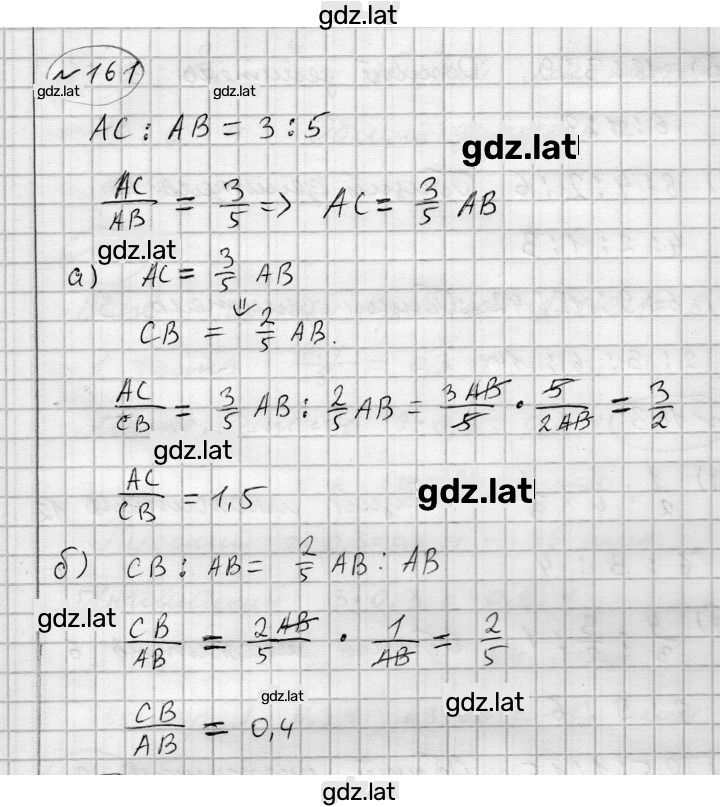 gdz.lat
№ 161
gdz.lat gdz.lat
AC : AB = 3 : 5
gdz.lat
AC/AB = 3/5 => AC = 3/5 AB
gdz.lat
а) AC = 3/5 AB
⇓
CB = 2/5 AB.
AC/CB = 3/5 AB : 2/5 AB = 3AB/5 · 5/2AB = 3/2
gdz.lat
AC/CB = 1,5
gdz.lat
б) CB : AB = 2/5 AB : AB
gdz.lat
CB/AB = 2AB/5 · 1/AB = 2/5
gdz.lat
gdz.lat
CB/AB = 0,4
gdz.lat